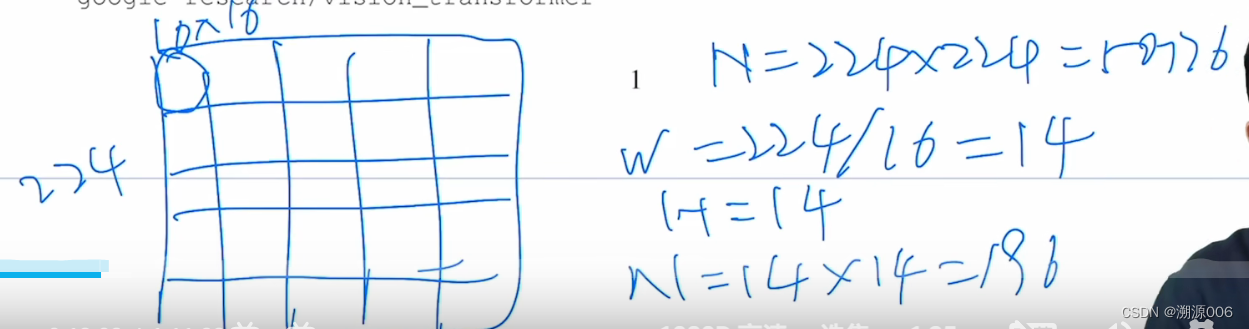 google-research/vision_transformer
16×16
224
1
N=224×224=50176
W=224/16=14
H=14
N=14×14=196
CSDN @溯源006